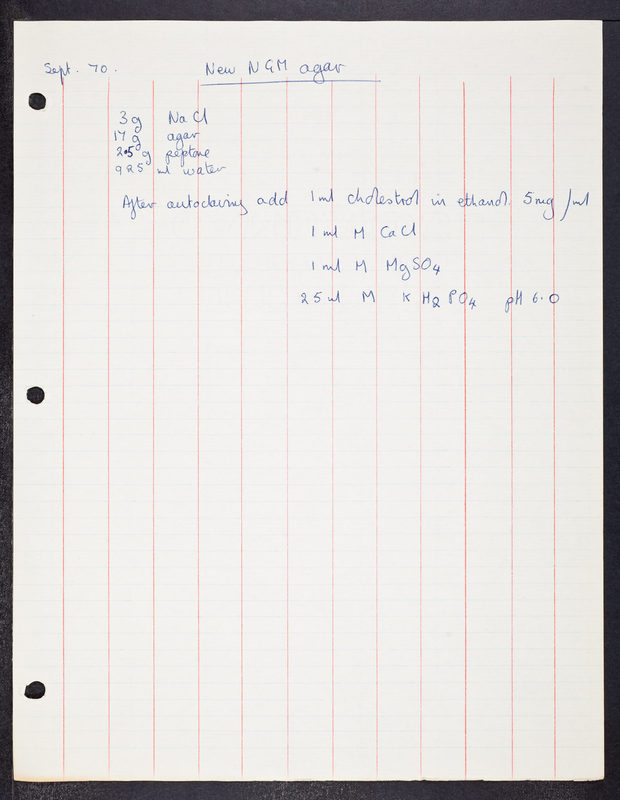 Sept. 70.
New NGM agar
3g NaCl
17 g agar
2.5 g peptone
925 ml water
After autoclaving add 1ml cholestrol in ethanol 5mg/ml
1 ml M CaCl
1 ml M MgSO4
25 ml M KH2PO4 pH 6.0